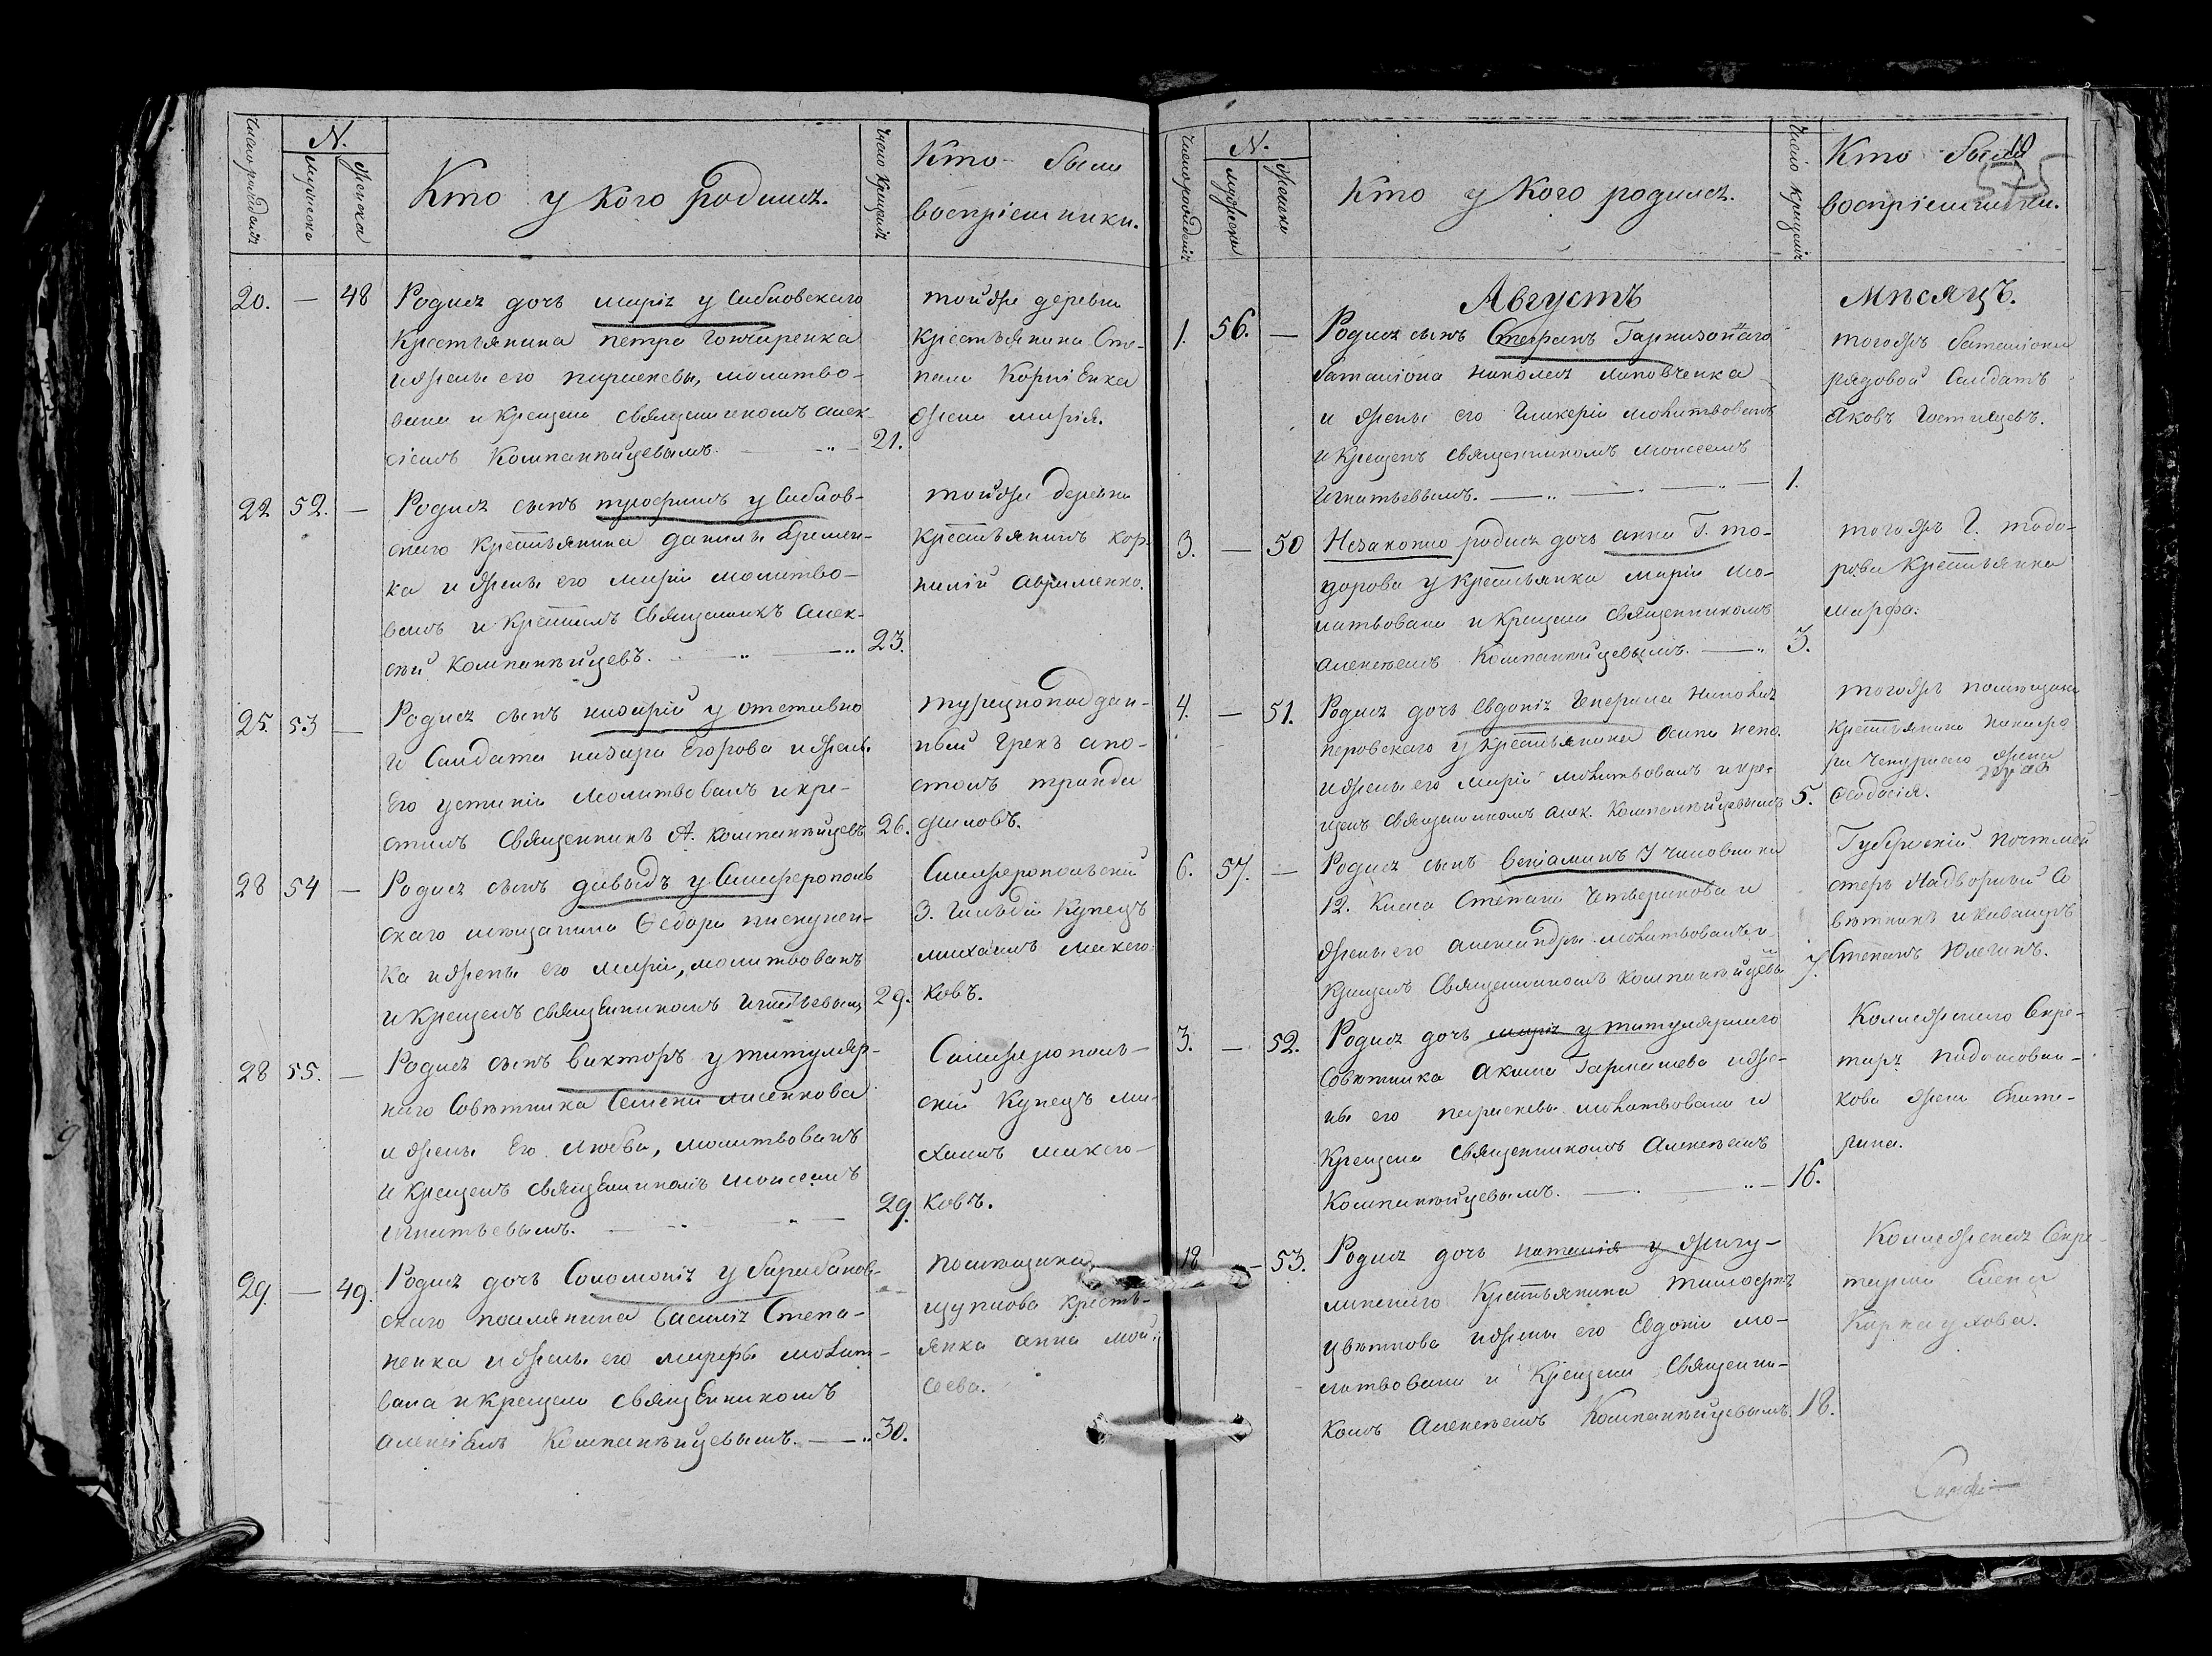 Число рождения
N.
мужеска
женска
Кто у кого родился.
Число крещения
Кто были
воспріемники.
20. — 48 Родися дочь марія у Сабловскаго
крестьянина петра Гончаренка
и жены его парасковы, молитво-
вана и крещена священникомъ алек-
сіемъ Компанѣйцевымъ. 21.
тойже деревни
крестьянина Сте-
пана Корніенка
жена марія.
22 52. — Родися сынъ трофимъ у Саблов-
скаго крестьянина данила Еремен-
ка и жены его маріи молитво-
валъ и крестилъ Священникъ алек-
сѣй Компанѣйцевъ. 23.
тойже деревни
крестьянинъ кор-
нилій авраменко.
25. 53 — Родися сынъ назарій у отставно
го Салдата назара Егорова и жены
его устиніи молитвовалъ и кре-
стилъ Священникъ А. компанѣйцевъ 26.
турецкоподдан-
ный Грекъ апо-
столъ транда
филовъ.
28 54 — Родися сынъ давыдъ у Симферополь
скаго мещанина Ѳедора пискунен-
ка и жены его маріи, молитвованъ
и крещенъ священникомъ Игнатьевымъ 29.
Симферопольскій
3. Гильдіи Купецъ
михаилъ макего-
ковъ.
28 55. — Родися сынъ викторъ у титуляр-
наго Совѣтника Семена
и жены Его Любви, молитвованъ
и крещенъ священникомъ моисеемъ
игнатьевымъ. 29.
Симферополь-
скій Купецъ ми-
хаилъ макего-
ковъ.
29. — 49. Родися дочь Соломонія у барабанов-
скаго поселянина василія Степа-
ненка и жены его марфы молит-
вана и крещена священникомъ
алексіемъ Компанѣйцевымъ. 30.
помѣщика
щуплова кресть-
янка анна мои-
сеева.
Число рожденія
N.
мужеска
женска
Кто у кого родися.
Число крещенія
Кто были
воспріемники.
Августъ Мѣсяцъ.
1. 56. — Родися сынъ Стефанъ Гарнизоннаго
баталіона николая липовченка
и жены его Гликеріи молитвованъ
и крещенъ священникомъ моисеемъ
Игнатьевымъ. 1.
тогожъ баталіона
рядовой Салдатъ
Яковъ Гостищевъ.
3. — 50 Незаконно родися дочь анна Г. то-
дорова у крестьянка маріи мо-
литвована и крещена священникомъ
алексѣемъ Компанѣйцевымъ. 3.
тогожъ Г. тодо-
рова крестьянка
марфа.
4. — 51. Родися дочь евдокія Генерала николая
перовскаго у крестьянина осипа непо.
и жены его маріи молитвованъ и кре-
щенъ священникомъ алек. Компанѣйцевымъ 5.
тогожъ помѣщика
крестьянина
жена
Ѳеодосія.
6. 57. — Родися сынъ веніаминъ у чиновника
12. Класа Степана Четверикова и
жены его александры молитвованъ и
крещенъ Священникомъ Компанѣйцевы 7.
Губернскій почтмей
стеръ Надворный Со
вѣтникъ и кавалеръ
Степанъ Юлегинъ.
3. — 52. Родися дочь марія у титулярнаго
Совѣтника Акима Гармашева и же-
ны его парасковы молитвована и
крещена священникомъ Алексѣемъ
Компанѣйцевымъ. 16.
Колежскаго Секре-
таря
кова жена Екате-
рина.
18 — 53. Родися дочь наталія у
крестьянина тимофея
цвѣткова и жены его Евдокіи мо-
литвована и крещена Священни-
комъ Алексѣемъ Компанѣйцевымъ. 18.
Коллежская Секре-
тарша Елена
Карнаухова.